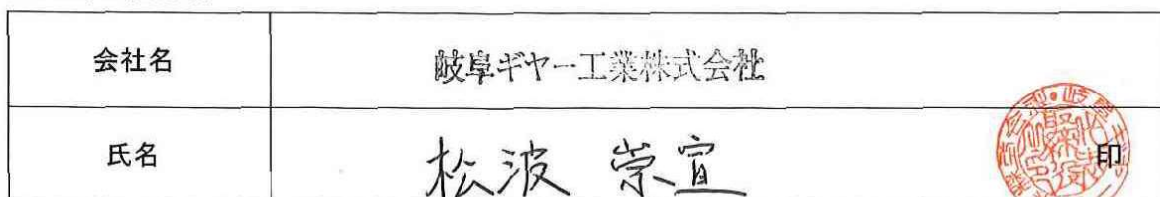 会社名 岐阜ギヤー工業株式会社
氏名 松波 崇宣 印